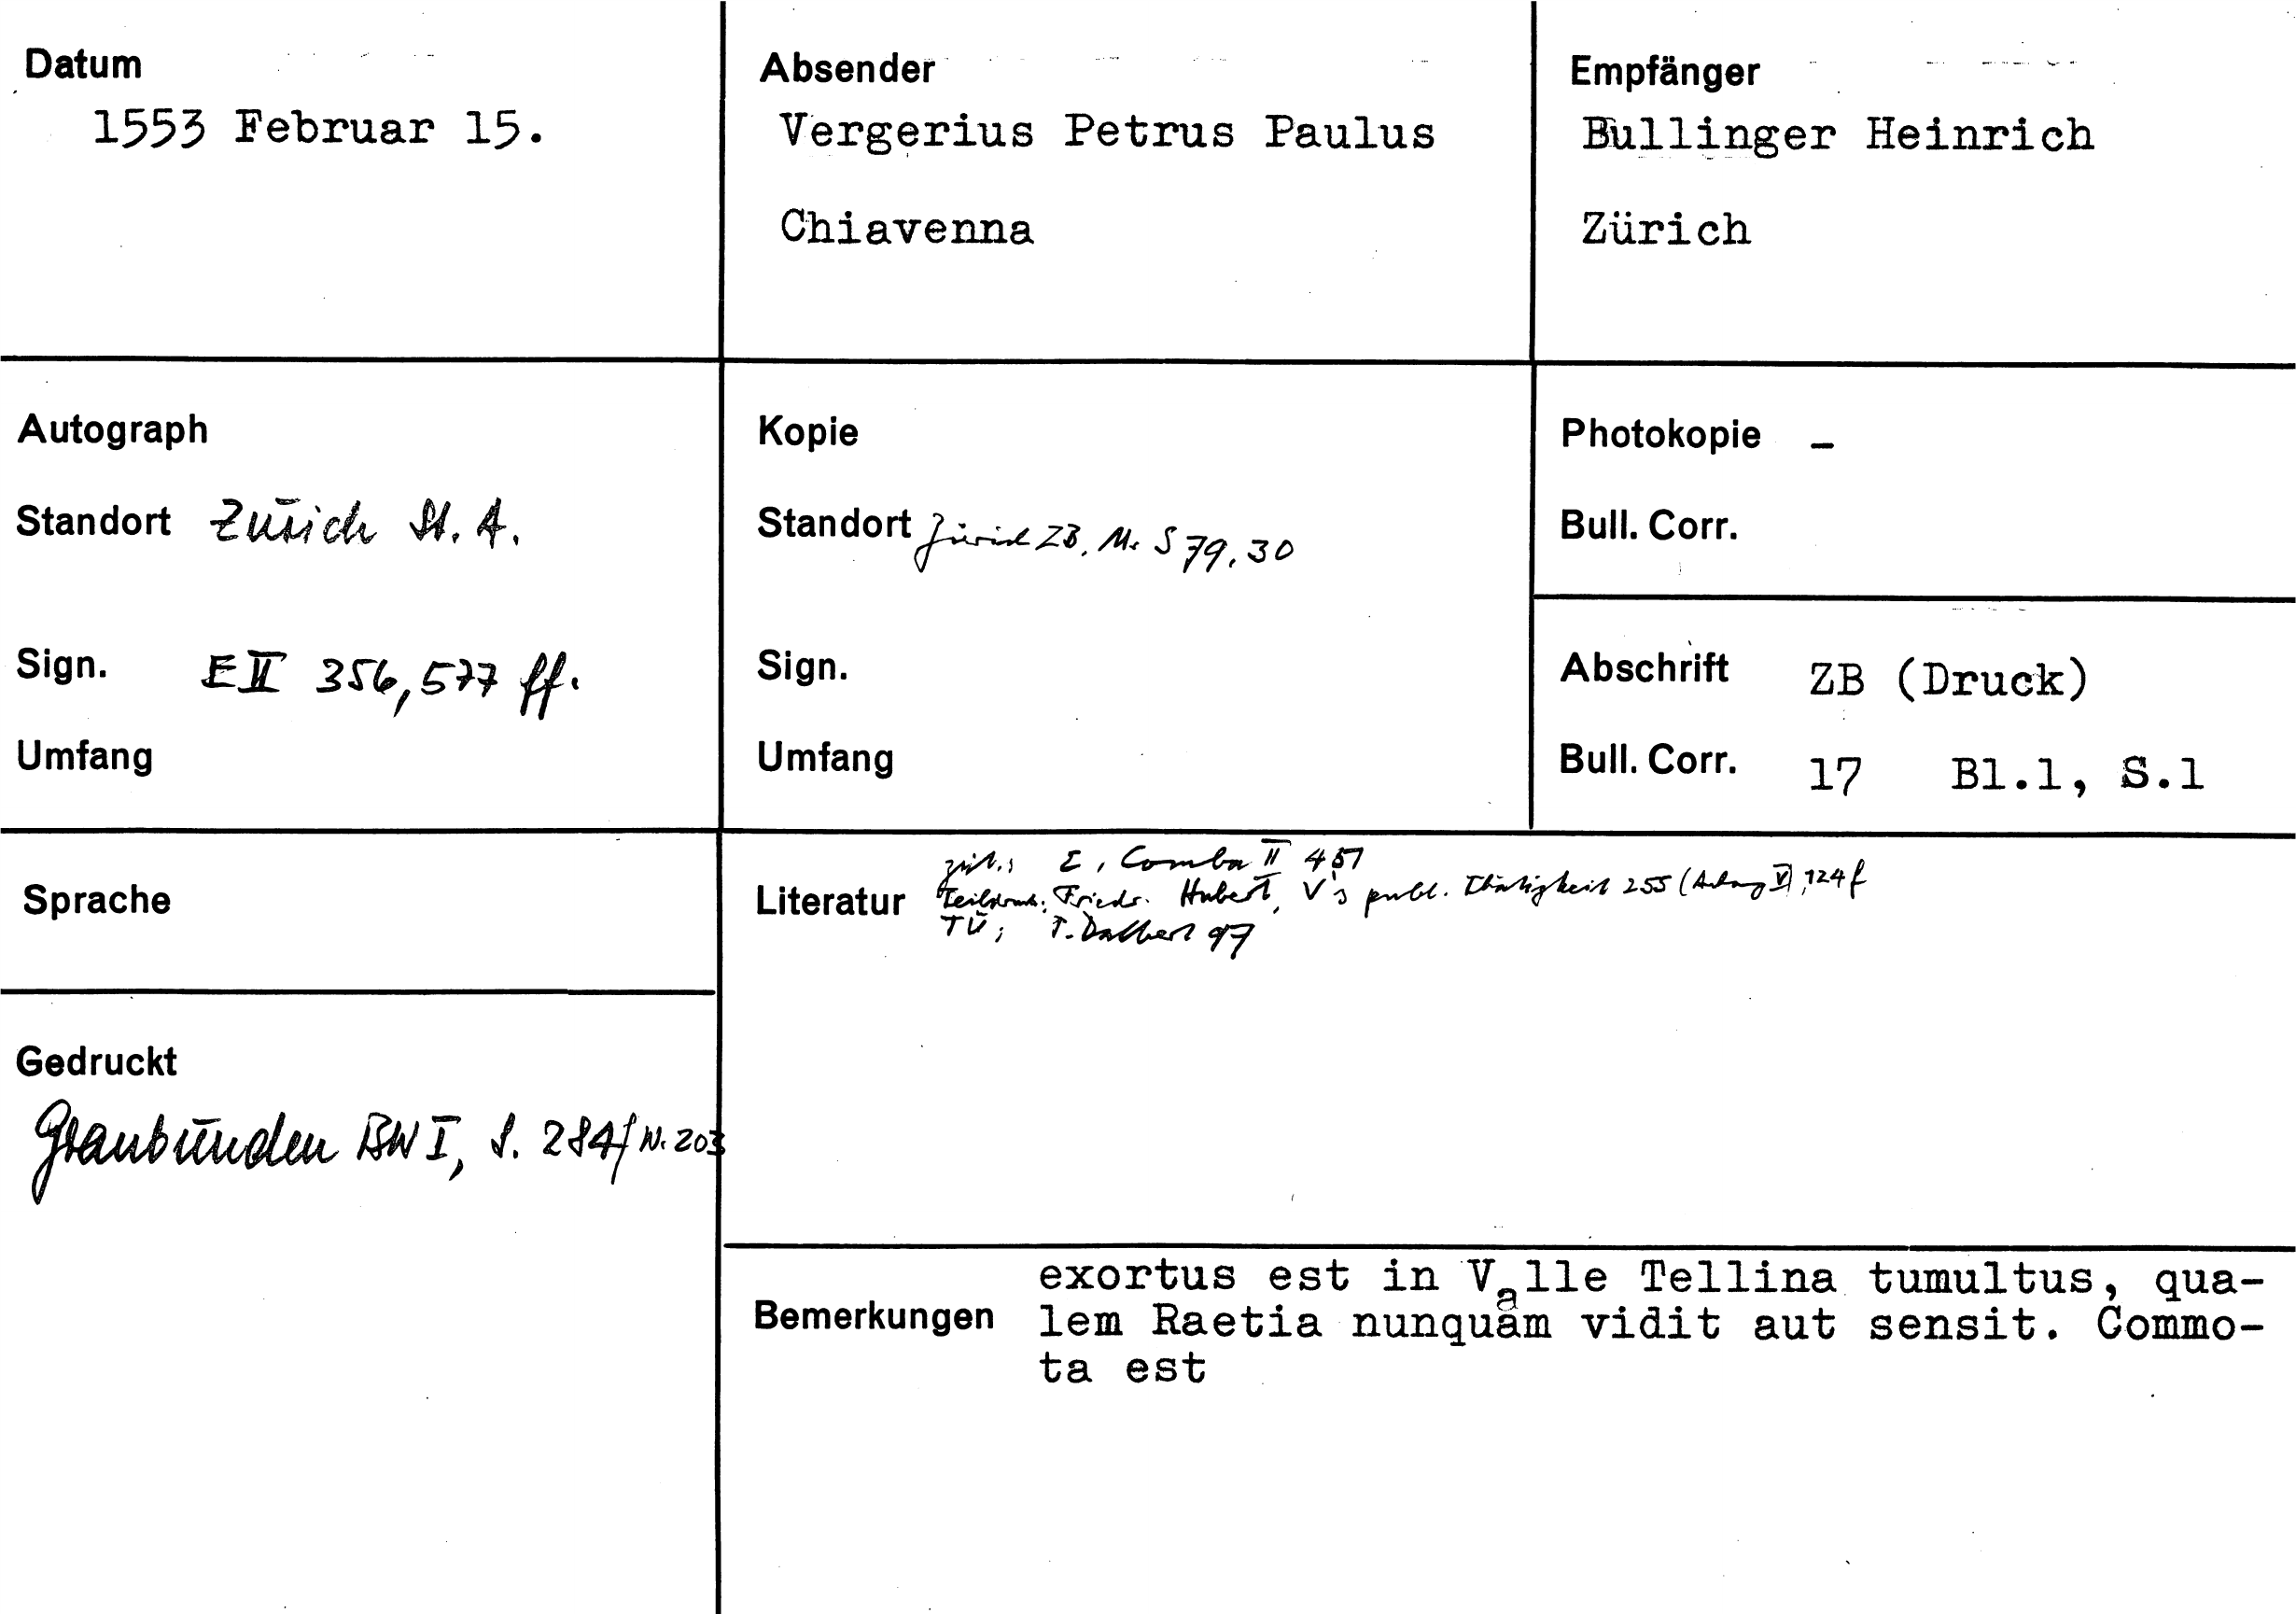 Datum
1553 Februar 15.
Absender
Vergerius Petrus Paulus
Chiavenna
Empfänger
Bullinger Heinrich
Zürich
Autograph
Standort Zürich St. A.
Sign. E II 356, 577 ff.
Umfang
Kopie
Standort Zürich ZB, Ms S 79, 30
Sign.
Umfang
Photokopie –
Bull. Corr.
Abschrift ZB (Druck)
Bull. Corr. 17 Bl.1, S.1
Sprache
Gedruckt
Graubünden BW I, S. 284f N. 203
Literatur
zit.: E. Comba II
Teildruck: Friedr. Hubert, V's publ. Thätigkeit 255 (Anhang V), 124f
TÜ: T. Dalbert 97
Bemerkungen
exortus est in Valle Tellina tumultus, qua-
lem Raetia nunquam vidit aut sensit. Commo-
ta est